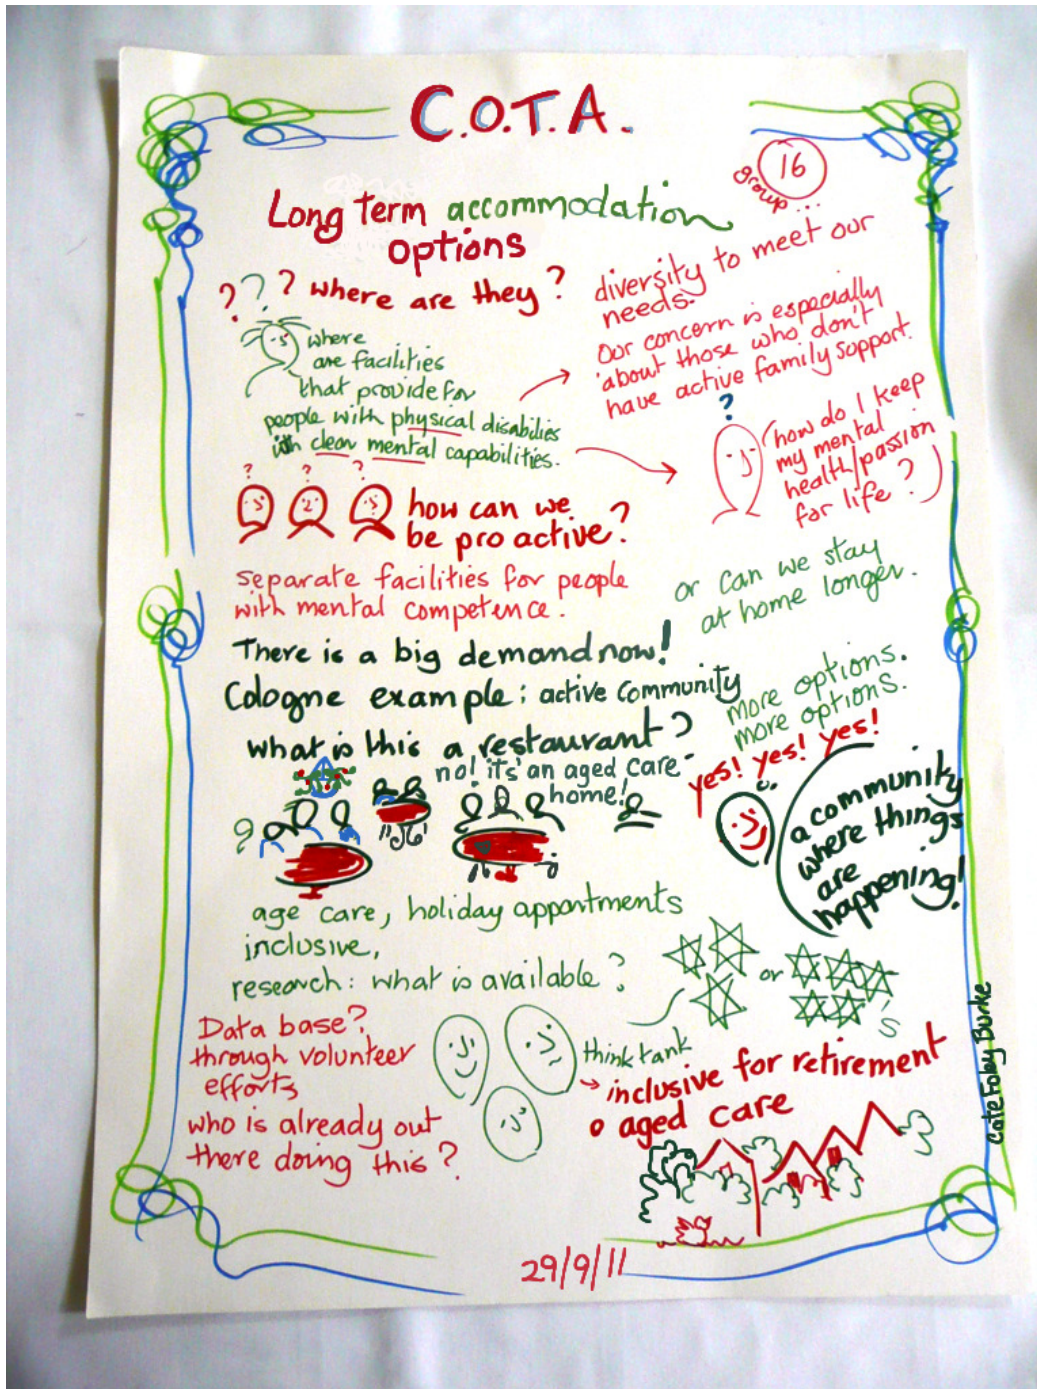 C.O.T.A.
group...
16
Long Term accommodation
options
??? where are they?
where
are facilities
that provide for
people with physical disabilies
with clear mental capabilities.
diversity to meet our
needs.
Our concern is especially
about those who don't
have active family support.
?
how do I keep
my mental
health/passion
for life?
? ? ?
how can we
be pro active?
separate facilities for people
with mental competence.
or can we stay
at home longer.
There is a big demand now!
Cologne example: active community
more options.
more options.
yes! yes! yes!
what is this a restaurant?
no! its' an aged care
home!
?
a community
where things
are
happening!
age care, holiday appartments
inclusive,
research: what is available?
or
's
Data base?
through volunteer
efforts
who is already out
there doing this?
think tank
inclusive for retirement
o aged care
Cate Foley Burke
29/9/11